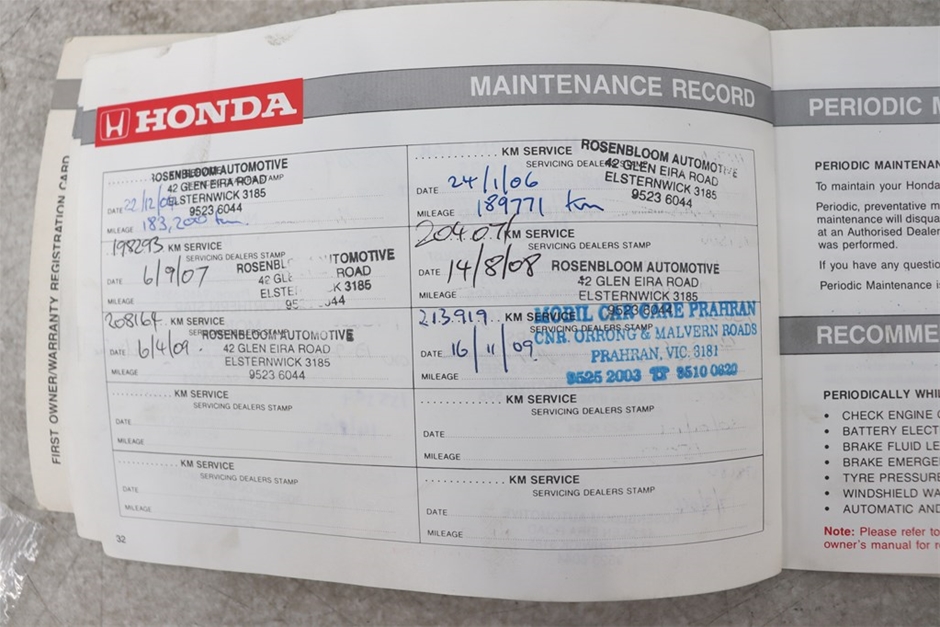 HONDA
MAINTENANCE RECORD
ROSENBLOOM AUTOMOTIVE
42 GLEN EIRA ROAD
ELSTERNWICK 3185
9523 6044
DATE 22/12/
MILEAGE 183,200 km.
KM SERVICE
SERVICING DEALERS STAMP
ROSENBLOOM AUTOMOTIVE
42 GLEN EIRA ROAD
ELSTERNWICK 3185
9523 6044
DATE 24/1/06
MILEAGE 189771 km
198293 KM SERVICE
SERVICING DEALERS STAMP
ROSENBL TOMOTIVE
42 GLE ROAD
ELSTE K 3185
95 44
DATE 6/9/07
MILEAGE
20407 KM SERVICE
SERVICING DEALERS STAMP
DATE 14/8/08
ROSENBLOOM AUTOMOTIVE
42 GLEN EIRA ROAD
ELSTERNWICK 3185
9523 6044
MILEAGE
208164 KM SERVICE
SERVICING DEALERS STAMP
ROSENBLOOM AUTOMOTIVE
42 GLEN EIRA ROAD
ELSTERNWICK 3185
9523 6044
DATE 6/4/09.
MILEAGE
213919 KM SERVICE
SERVICING DEALERS STAMP
MOBIL CAR CARE PRAHRAN
CNR. ORRONG & MALVERN ROADS
PRAHRAN, VIC. 3181
9525 2003 9510 0820
DATE 16/11/09.
MILEAGE
KM SERVICE
SERVICING DEALERS STAMP
DATE
MILEAGE
KM SERVICE
SERVICING DEALERS STAMP
DATE
MILEAGE
KM SERVICE
SERVICING DEALERS STAMP
DATE
MILEAGE
KM SERVICE
SERVICING DEALERS STAMP
DATE
MILEAGE
32
FIRST OWNER/WARRANTY REGISTRATION CARD
PERIODIC M
PERIODIC MAINTENAN
To maintain your Honda
Periodic, preventative m
maintenance will disqua
at an Authorised Dealer
was performed.
If you have any questio
Periodic Maintenance is
RECOMME
PERIODICALLY WHI
• CHECK ENGINE
• BATTERY ELECT
• BRAKE FLUID LE
• BRAKE EMERGE
• TYRE PRESSURE
• WINDSHIELD WA
• AUTOMATIC AND
Note: Please refer to
owner's manual for r